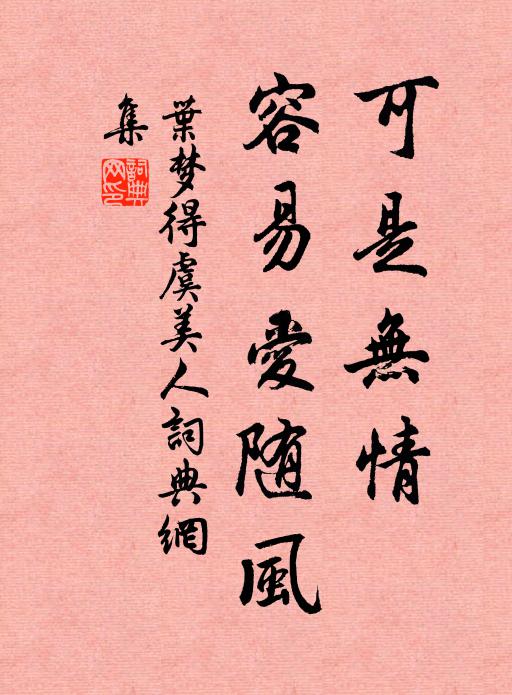 可是無情
容易愛随風
葉梦得虞美人詞典網
集
詞典網印